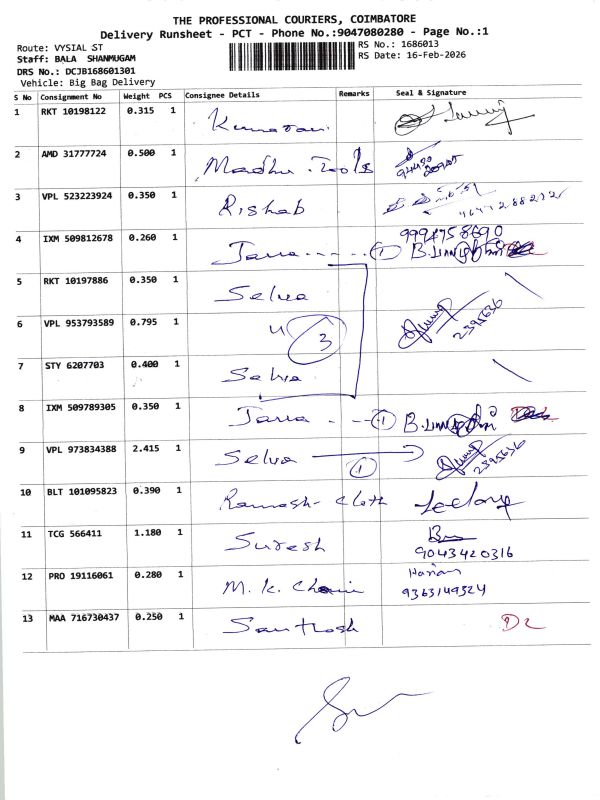 THE PROFESSIONAL COURIERS, COIMBATORE
Delivery Runsheet - PCT - Phone No.:9047080280 - Page No.:1
Route: VYSIAL ST
RS No.: 1686013
Staff: BALA SHANMUGAM
RS Date: 16-Feb-2026
DRS No.: DCJB168601301
Vehicle: Big Bag Delivery
S No Consignment No Weight PCS Consignee Details Remarks Seal & Signature
1 RKT 10198122 0.315 1
2 AMD 31777724 0.500 1 Madhu Tools
3 VPL 523223924 0.350 1 Rishab
9994758690
4 IXM 509812678 0.260 1 1
5 RKT 10197886 0.350 1 Selva
6 VPL 953793589 0.795 1 4 3 2395636
7 STY 6207703 0.400 1 Selva
8 IXM 509789305 0.350 1 1
9 VPL 973834388 2.415 1 Selva 1 2395636
10 BLT 101095823 0.390 1 Ramash - Cloth
11 TCG 566411 1.180 1 Suresh
9043420316
12 PRO 19116061 0.280 1 M. K. Chain
9363149324
13 MAA 716730437 0.250 1 Santhosh D2